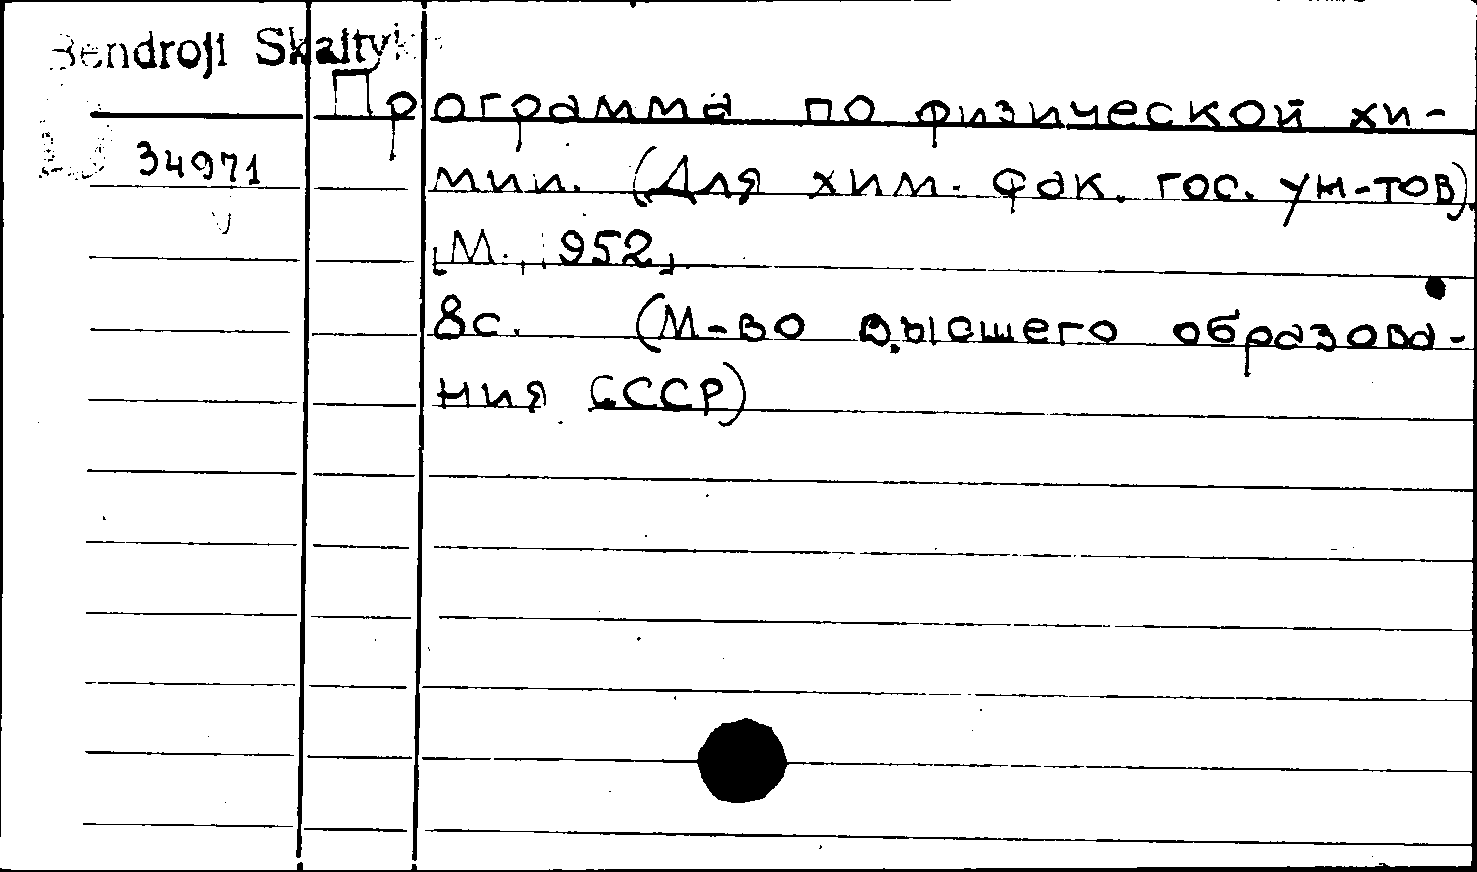 Bendroji Skaityk
Программа по физической хи-
34971
мии. (Для хим. фак. гос. ун-тов).
[М., 1952]
8с. (М-во высшего образова-
ния СССР)